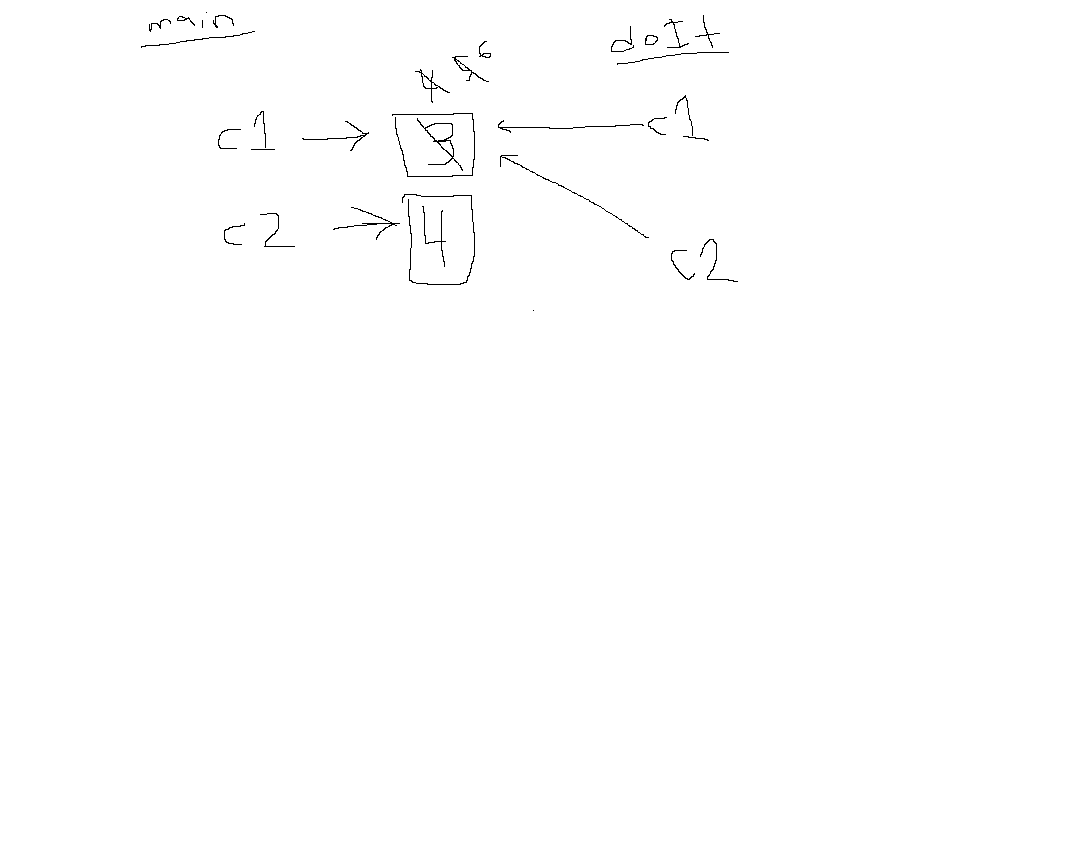 main doIt
4 5 6
c1 3 c1
c2 4 c2